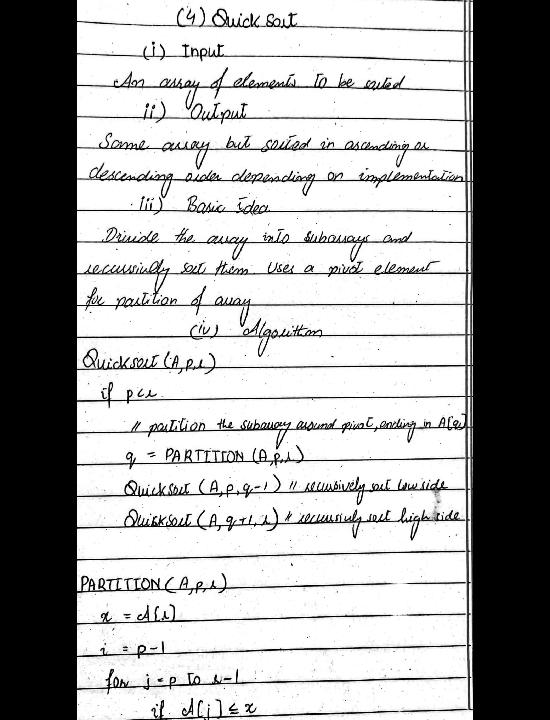 (4) Quick Sort
(i) Input
An array of elements to be sorted
ii) Output
Same array but sorted in ascending or
descending order depending on implementation
iii) Basic Idea
Divide the array into subarrays and
recursively sort them Uses a pivot element
for partition of array
(iv) Algorithm
Quicksort (A,p,r)
if p<r
// partition the subarray around pivot, ending in A[q]
q = PARTITION (A,p,r)
Quicksort (A, p, q-1) // recursively sort low side
Quicksort (A, q+1, r) // recursively sort high side
PARTITION (A,p,r)
x = A[r]
i = p-1
for j = p to r-1
if A[j] ≤ x